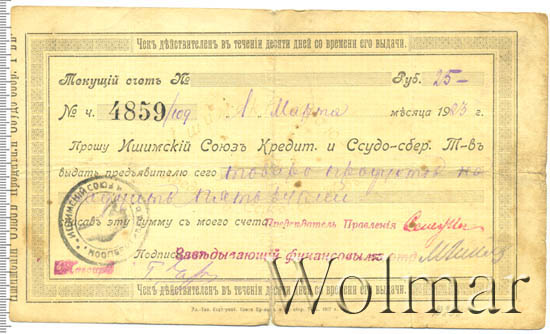 Чекъ дѣйствителен въ теченіи десяти дней со времени его выдачи.
Текущій счетъ № Руб. 25-
№ ч. 4859/109 1 Марта мѣсяца 1923 г.
Прошу Ишимскій Союзъ Кредит. и Ссудо-сбер. Т-въ
выдать предъявителю сего товаро продуктов на
двадцать пять рублей
списавъ эту сумму съ моего счета. Председатель Правления
Подпись Заведывающий финансовым отд.
ИШИМСКІЙ СОЮЗ
Чекъ дѣйствителен въ теченіи десяти дней со времени его выдачи.
Wolmar